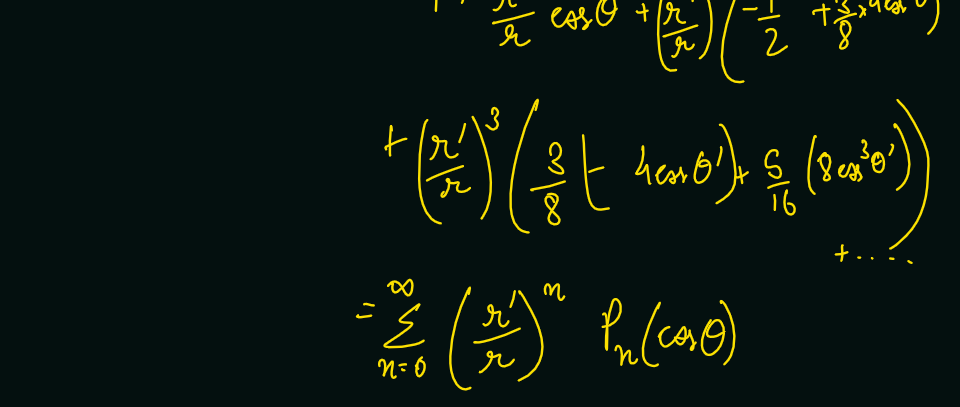 r'/r cosθ + (r'/r) (-1/2 + 3/8 × 4cos
+ (r'/r)^3 (3/8 (- 4cosθ') + 5/16 (8cos^3θ'))
+ .....
= ∑_{n=0}^{∞} (r'/r)^n P_n(cosθ)